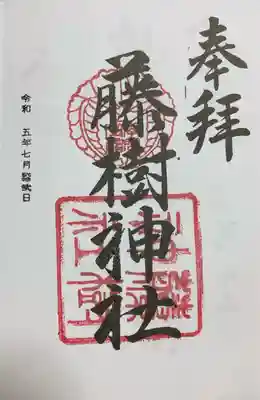 奉拝
藤樹神社
令和 五年七月參拝日